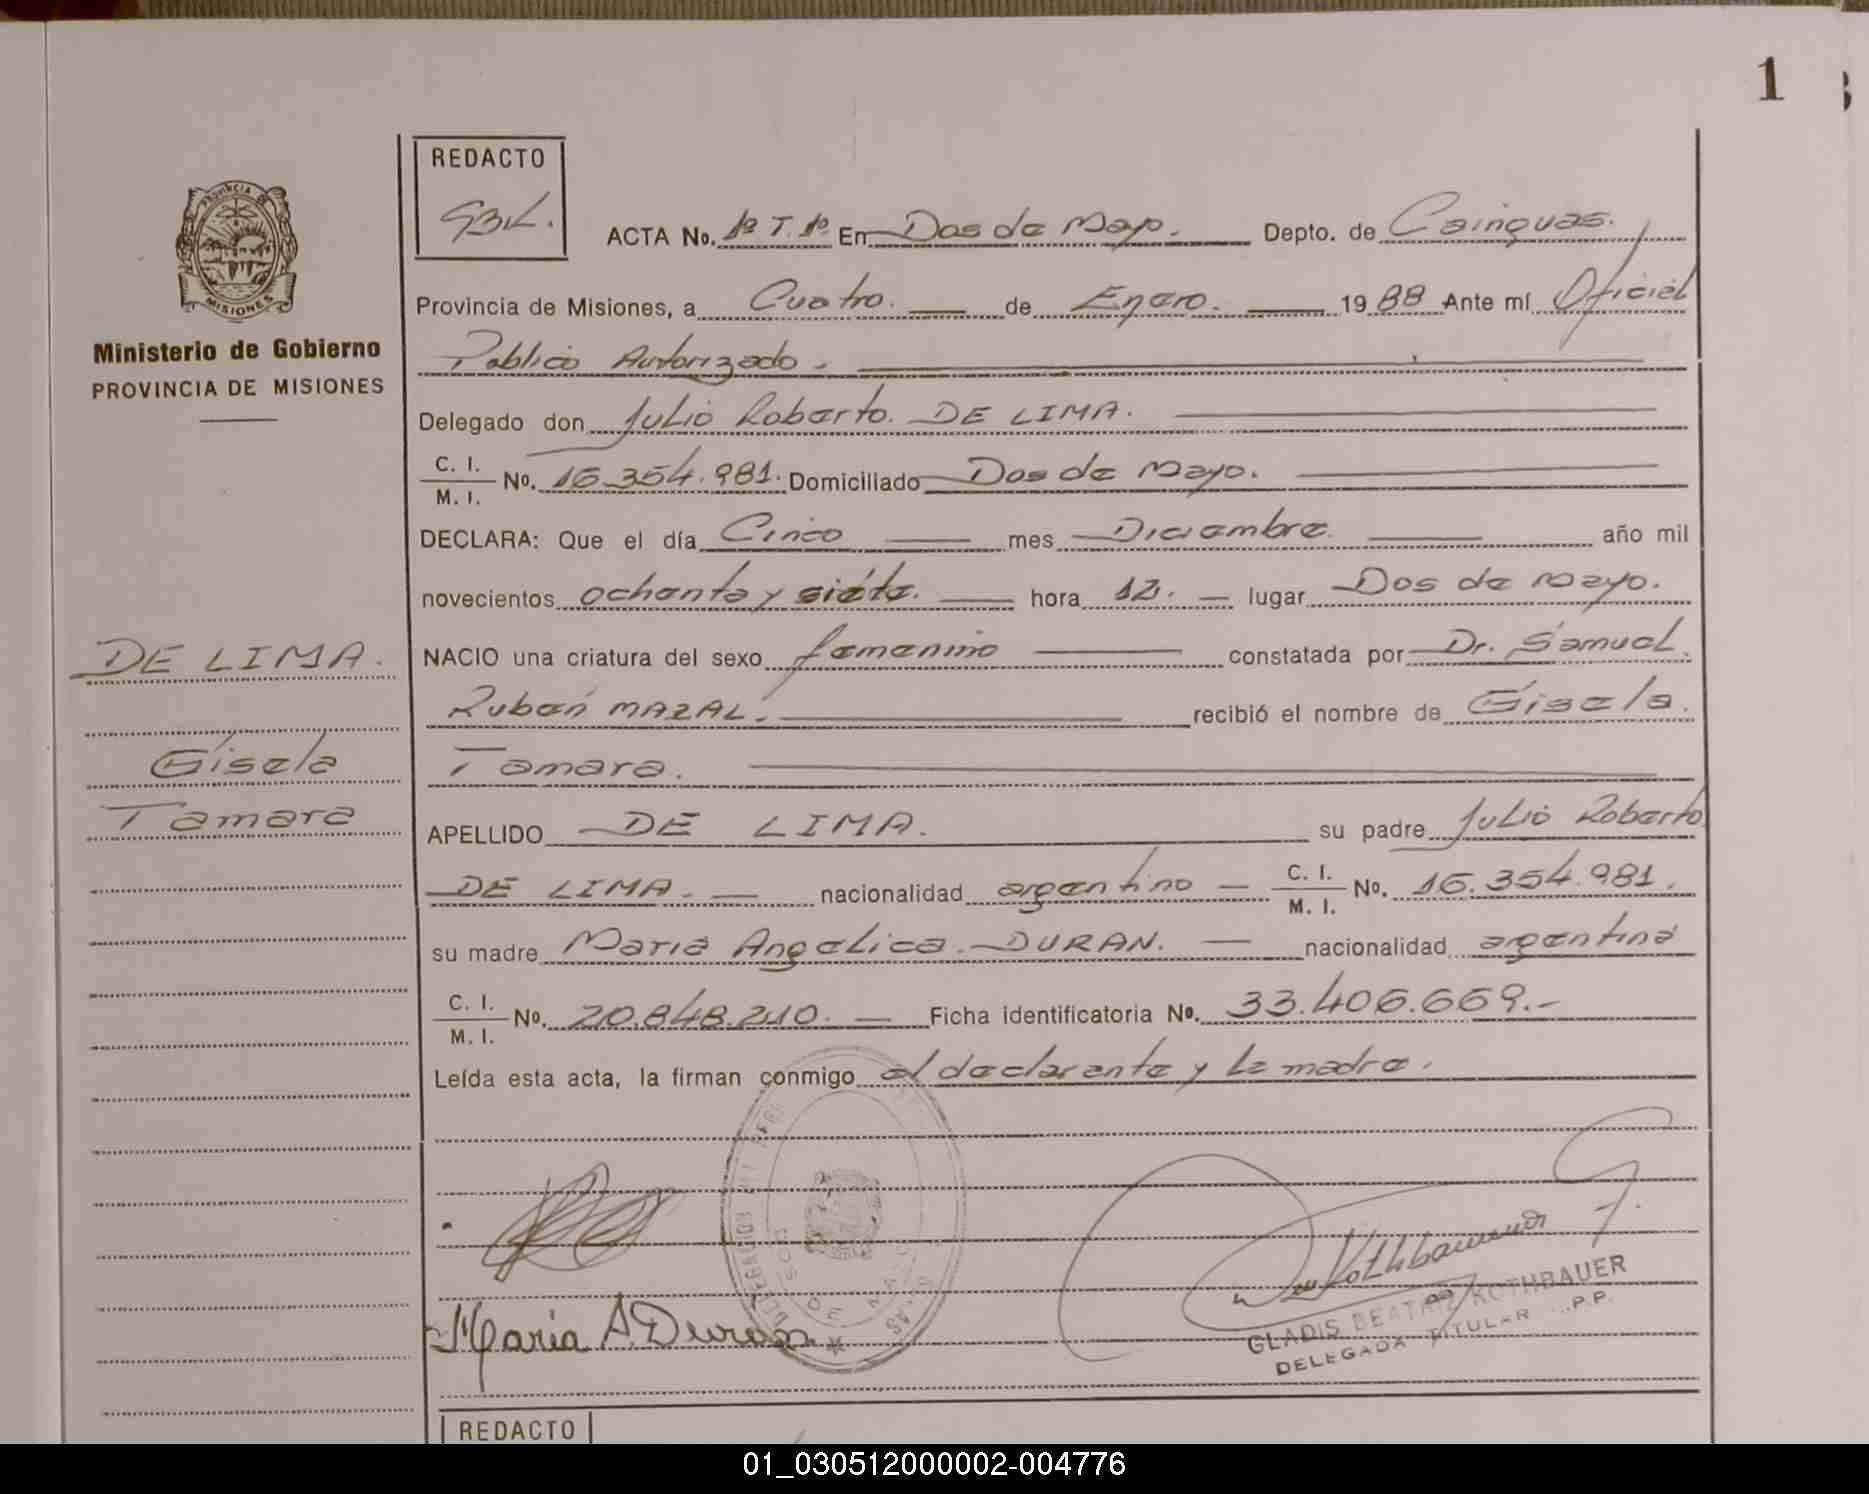 1
REDACTO
GBK.
PROVINCIA DE
MISIONES
Ministerio de Gobierno
PROVINCIA DE MISIONES
ACTA No. 1º T. 1º En Dos de Mayo. Depto. de Cainguas.
Provincia de Misiones, a Cuatro. de Enero. 19 88 Ante mí Oficial
Publico Autorizado.
Delegado don Julio Roberto. DE LIMA.
C. I.
M. I. No. 16.354.981. Domiciliado Dos de Mayo.
DECLARA: Que el día Cinco mes Diciembre. año mil
novecientos ochenta y siete. hora 12. lugar Dos de mayo.
DE LIMA.
NACIO una criatura del sexo femenino constatada por Dr. Samuel.
Rubén MAZAL. recibió el nombre de Gisela.
Gisela
Tamara.
Tamara
APELLIDO DE LIMA. su padre Julio Roberto
DE LIMA. nacionalidad argentino C. I.
M. I. No. 16.354.981.
su madre Maria Angelica. DURAN. nacionalidad argentina
C. I.
M. I. No. 20.848.210. Ficha identificatoria No. 33.406.669.-
Leída esta acta, la firman conmigo el declarante y la madre.
Maria A. Duran
GLADIS BEATRIZ KOTHBAUER
DELEGADA TITULAR
REDACTO
01_030512000002-004776